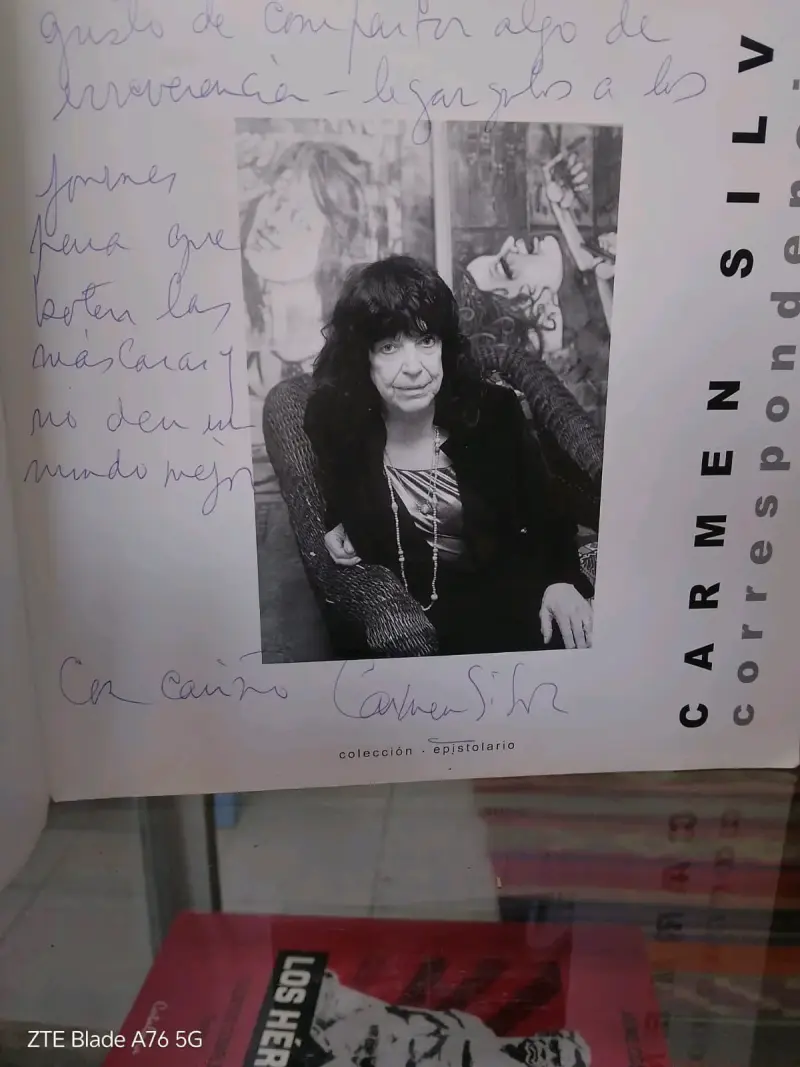 gusto de compartir algo de
irreverencia - legar gritos a los
jovenes
para que
boten las
máscaras y
no den un
mundo mejor
Con cariño Carmen Silva
colección · epistolario
CARMEN SILV
correspondenci
LOS HÉR
ZTE Blade A76 5G